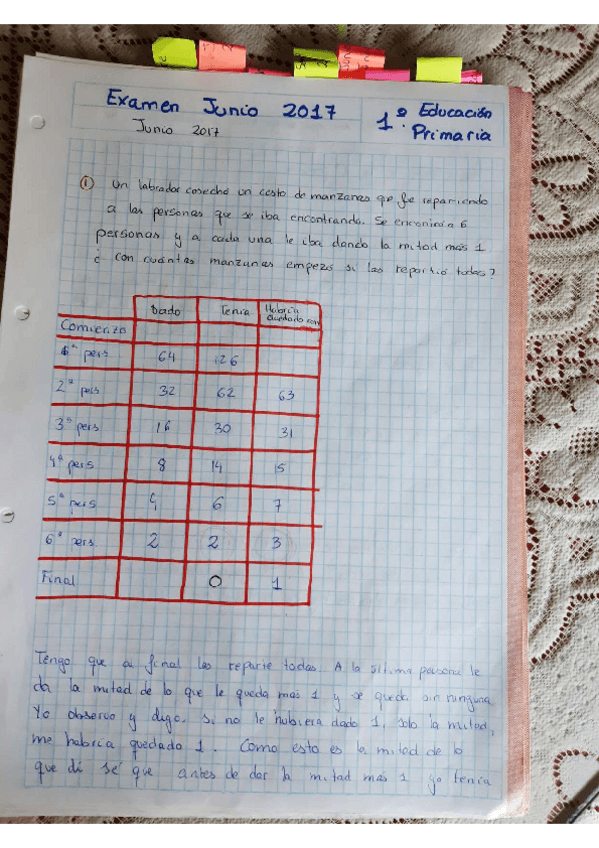 Examen Junio 2017
1º Educación Primaria
Junio 2017
① Un labrador cosechó un cesto de manzanas que fue repartiendo
a las personas que se iba encontrando. Se encontró a 6
personas y a cada una le iba dando la mitad más 1
¿ con cuántas manzanas empezó si las repartió todas?
Dado Tenia Habria quedado con
Comienzo
1ª pers 64 126
2ª pers 32 62 63
3ª pers 16 30 31
4ª pers 8 14 15
5ª pers 4 6 7
6ª pers 2 2 3
Final 0 1
Tengo que al final las reparte todas. A la última persona le
da la mitad de lo que le queda mas 1 y se queda sin ninguna
Yo observo y digo. si no le hubiera dado 1, solo la mitad,
me habría quedado 1. Como esto es la mitad de lo
que dí sé que antes de dar la mitad mas 1 yo tenía